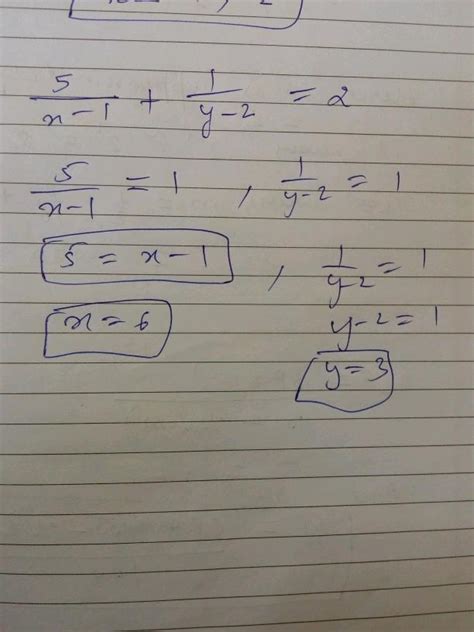 5/(x-1) + 1/(y-2) = 2
5/(x-1) = 1 , 1/(y-2) = 1
5 = x-1 , 1/(y-2) = 1
x = 6
y-2 = 1
y = 3